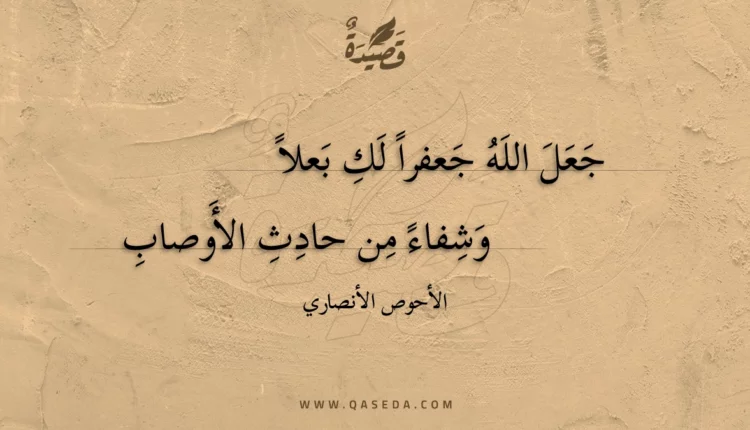 قَصِيْدَةٌ
جَعَلَ اللَهُ جَعفراً لَكِ بَعلاً
وَشِفاءً مِن حادِثِ الأَوصابِ
الأحوص الأنصاري
WWW.QASEDA.COM